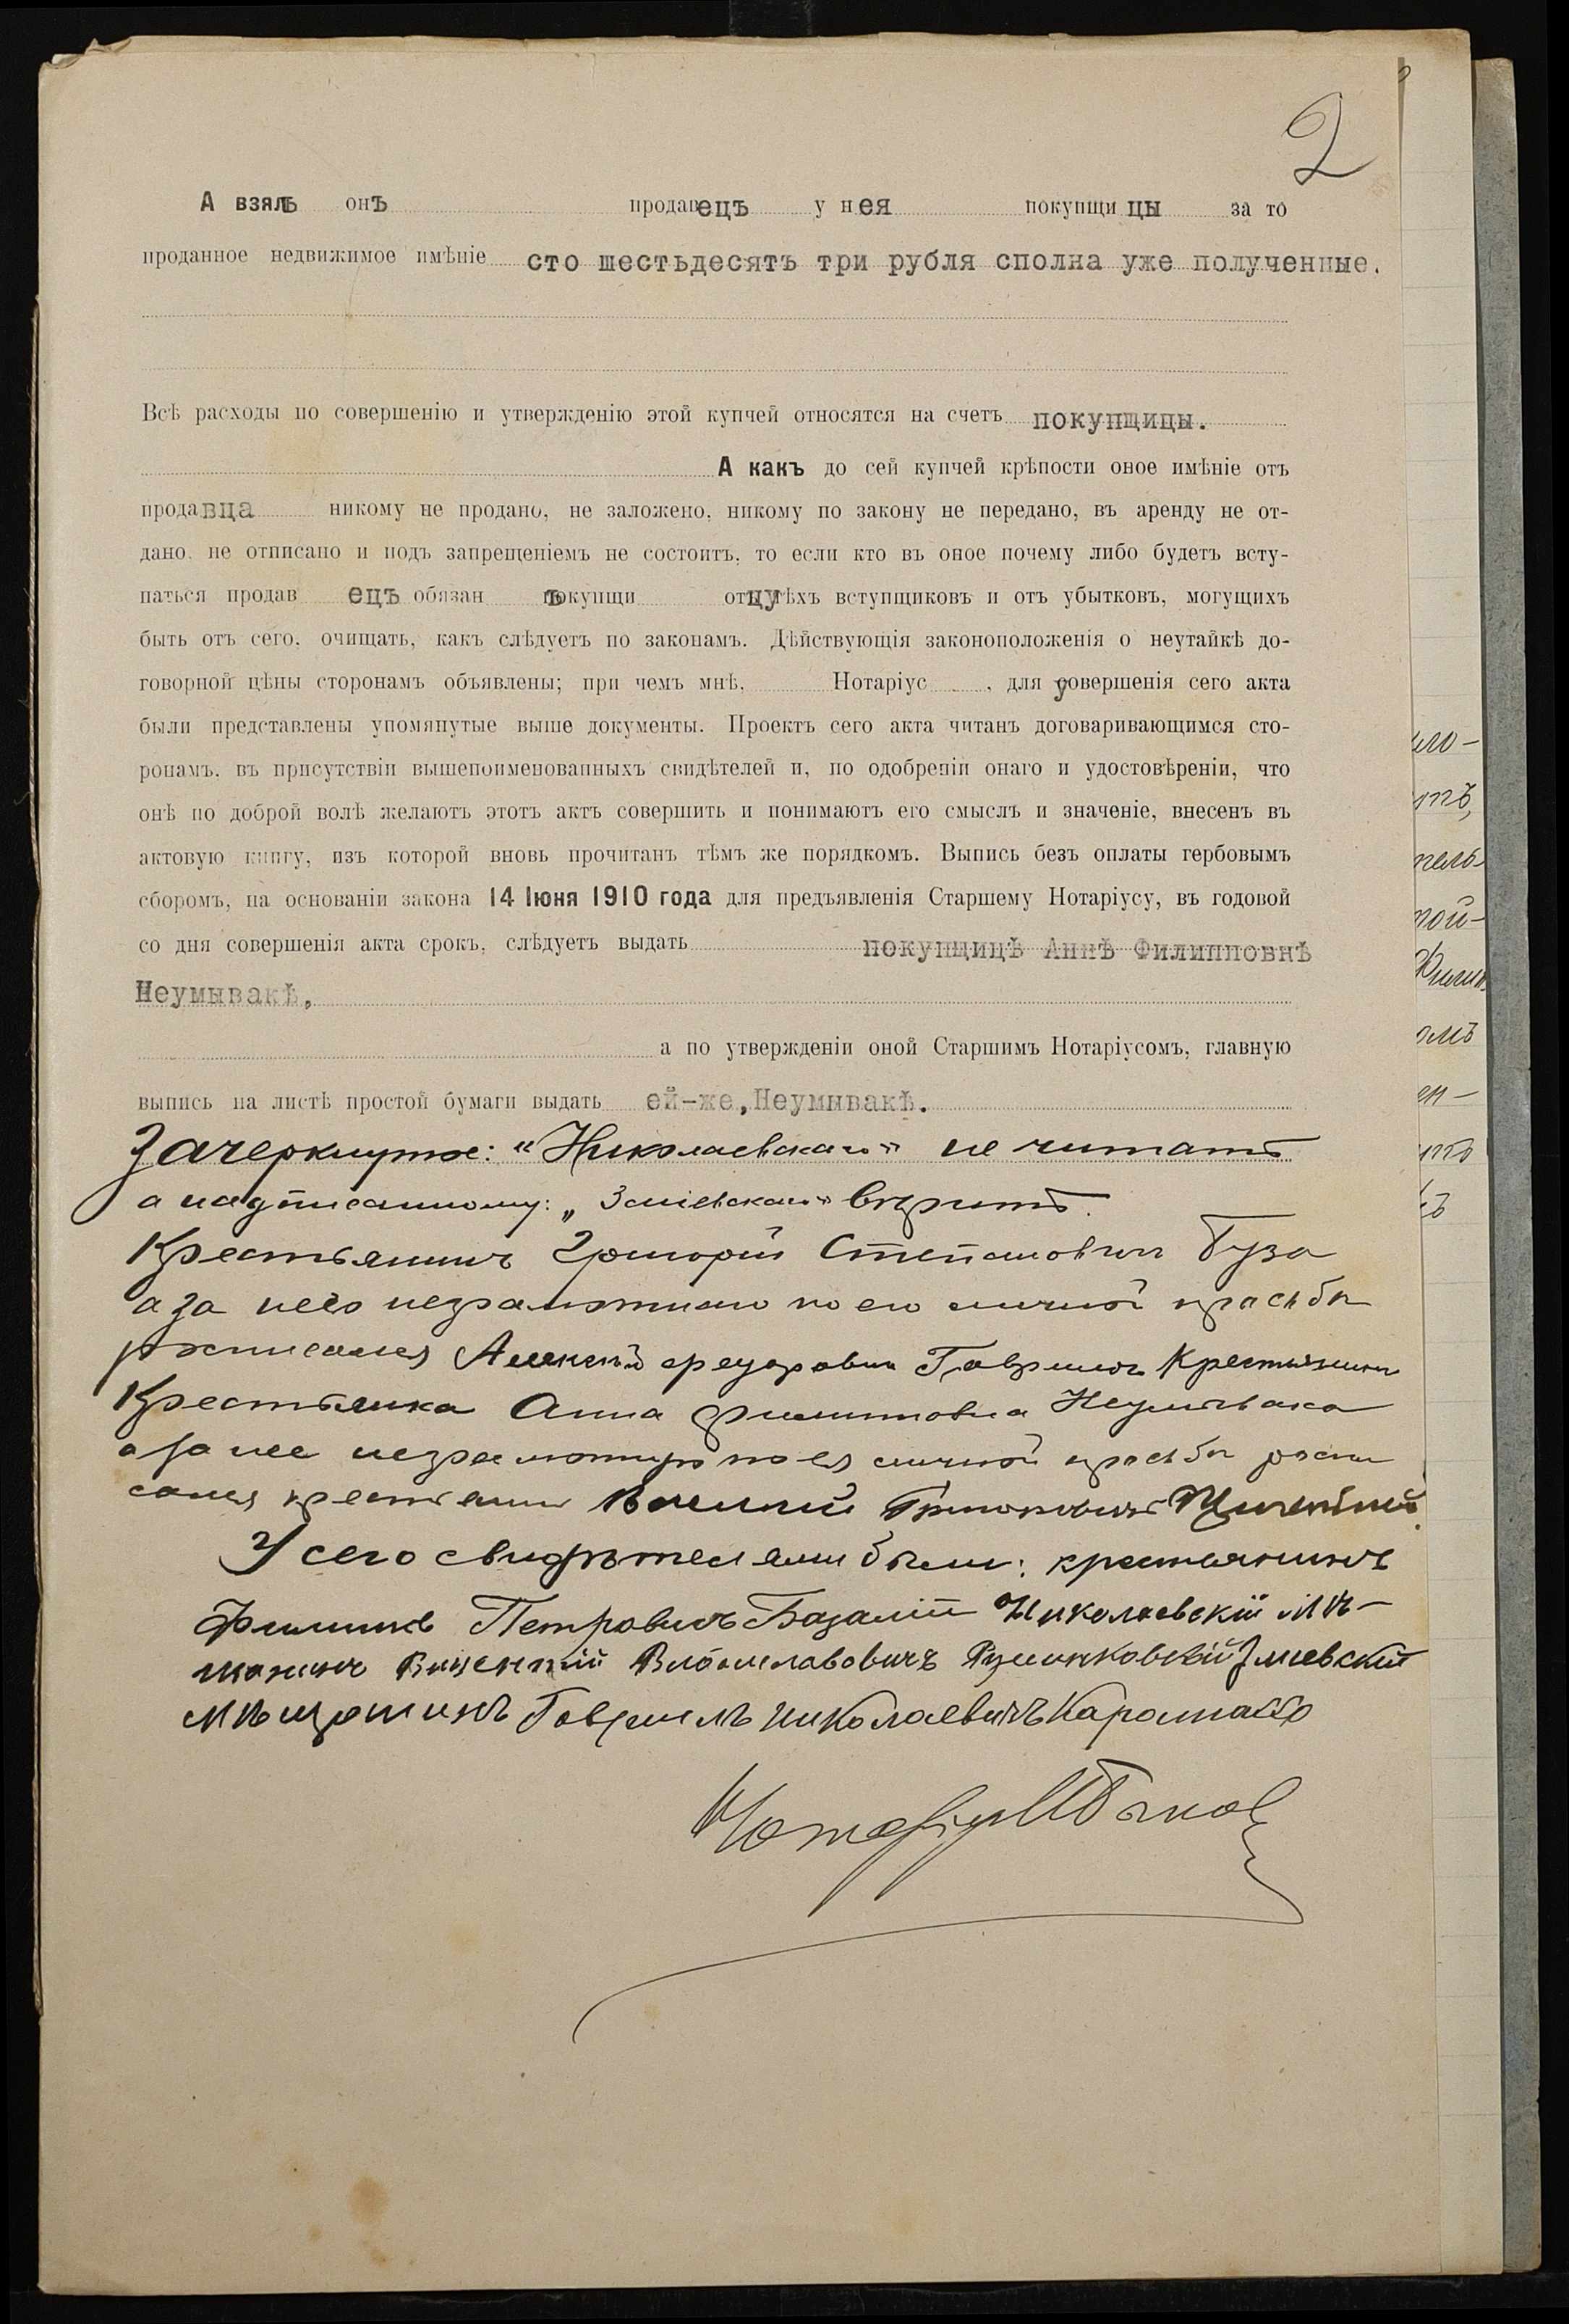 2
А взялъ онъ продавецъ у нея покупщицы за то
проданное недвижимое имѣніе сто шестьдесятъ три рубля сполна уже полученные.
Всѣ расходы по совершенію и утвержденію этой купчей относятся на счетъ покупщицы.
А какъ до сей купчей крѣпости оное имѣніе отъ
продавца никому не продано, не заложено, никому по закону не передано, въ аренду не от-
дано, не отписано и подъ запрещеніемъ не состоитъ, то если кто въ оное почему либо будетъ всту-
паться продавецъ обязанъ покупщицу отъ тѣхъ вступщиковъ и отъ убытковъ, могущихъ
быть отъ сего, очищать, какъ слѣдуетъ по законамъ. Дѣйствующія законоположенія о неутайкѣ до-
говорной цѣны сторонамъ объявлены; при чемъ мнѣ, Нотаріусу, для совершенія сего акта
были представлены упомянутые выше документы. Проектъ сего акта читанъ договаривающимся сто-
ронамъ, въ присутствіи вышепоименованныхъ свидѣтелей и, по одобреніи онаго и удостовѣреніи, что
онѣ по доброй волѣ желаютъ этотъ актъ совершить и понимаютъ его смыслъ и значеніе, внесенъ въ
актовую книгу, изъ которой вновь прочитанъ тѣмъ же порядкомъ. Выпись безъ оплаты гербовымъ
сборомъ, на основаніи закона 14 Іюня 1910 года для предъявленія Старшему Нотаріусу, въ годовой
со дня совершенія акта срокъ, слѣдуетъ выдать покупщицѣ Аннѣ Филипповнѣ
Неумывакѣ,
а по утвержденіи оной Старшимъ Нотаріусомъ, главную
выпись на листѣ простой бумаги выдать ей-же, Неумывакѣ.
Зачеркнутое: "Николаевскаго" не читать
а надписанному: „Зміевскаго" вѣрить.
Крестьянинъ Григорій Степановичъ Буза
а за него неграмотнаго по его личной просьбѣ
росписался Алексѣй Федоровичъ Гаврышъ Крестьянинъ
Крестьянка Анна Филипповна Неумывака
а за нее неграмотную по ея личной просьбѣ роспи
сался крестьянинъ Василій
У сего свидѣтелями были: крестьянинъ
Филиппъ Петровичъ Базалій Николаевскій Мѣ-
щанинъ Викентій Владиславовичъ Зміевскій
Мѣщанинъ Гавріилъ Николаевичъ
Нотаріусъ Быков